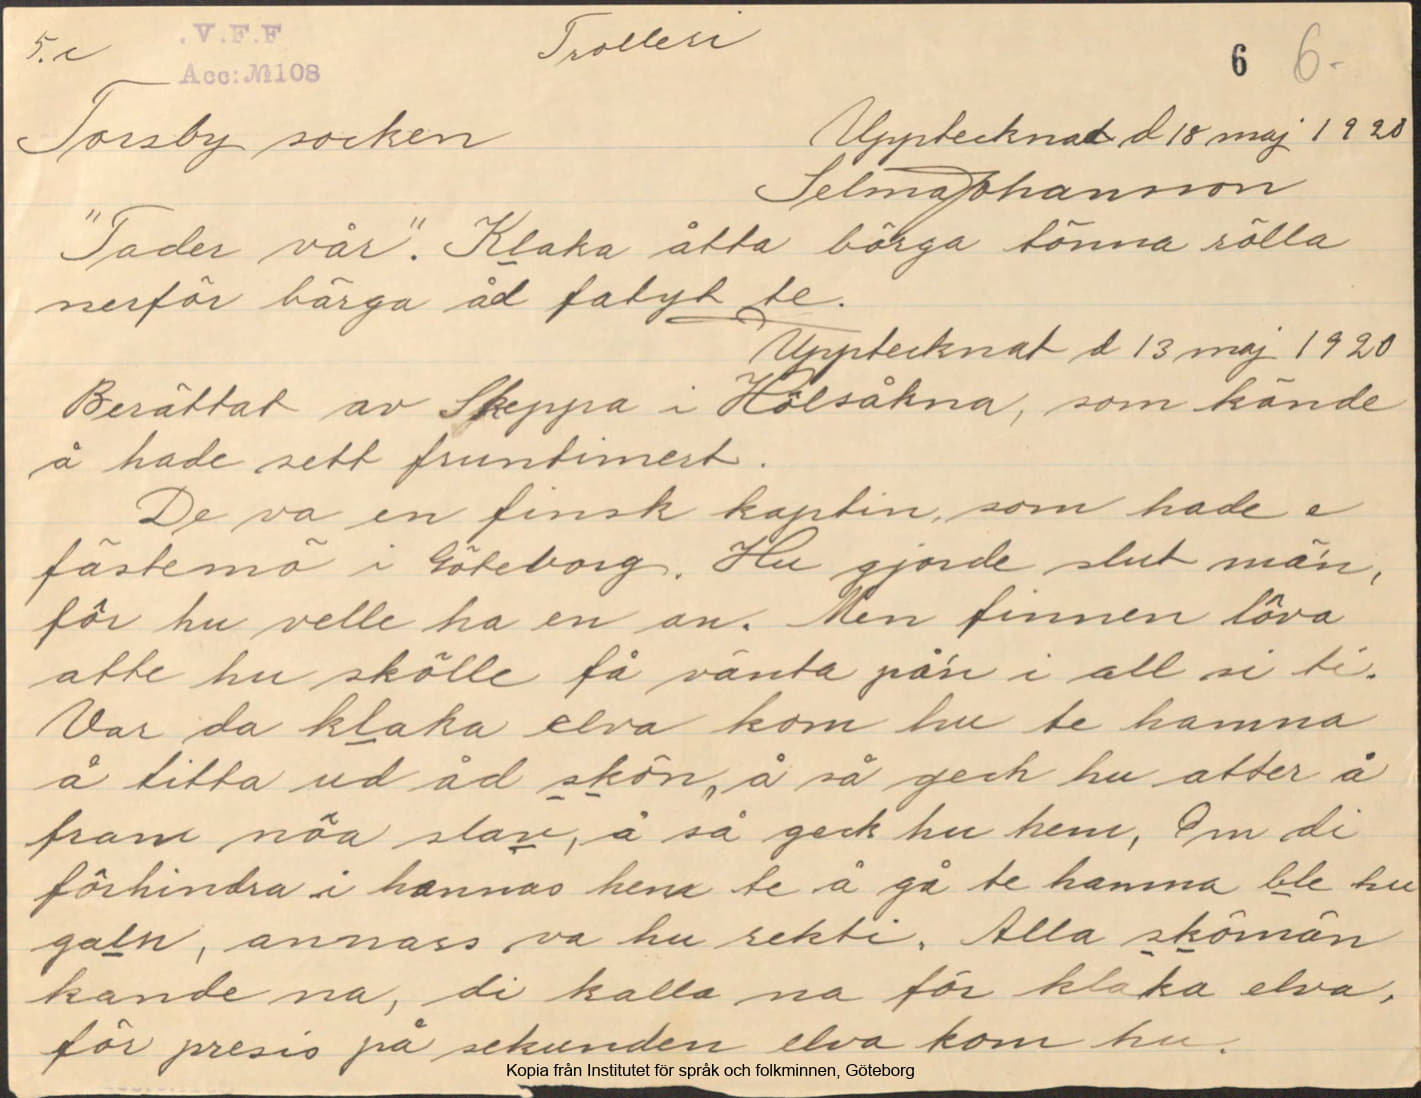 5.c
V.F.F
Trolleri
6 6.
Acc:№108
Torsby socken Upptecknat d 18 maj 1920
Selma Johansson
"Fader vår". Klaka åtta börga tönna rölla
nerför bärga åd fatyt te.
Upptecknat d 13 maj 1920
Berättat av Skeppa i Hölsåkna, som kände
å hade sett fruntimert.
De va en finsk kaptin, som hade e
fästemö i Göteborg. Hu gjorde slut mä'n,
för hu velle ha en an. Men finnen lôva
atte hu skölle få vänta på'n i all si ti.
Var da klaka elva kom hu te hamna
å titta ud åd skön, å så geck hu atter å
fram nôa slav, å så geck hu hem, Om di
förhindra i hannas hem te å gå te hamna ble hu
galn, annars va hu rekti. Alla skömän
kande na, di kalla na för klaka elva,
för presis på sekunden elva kom hu.
Kopia från Institutet för språk och folkminnen, Göteborg